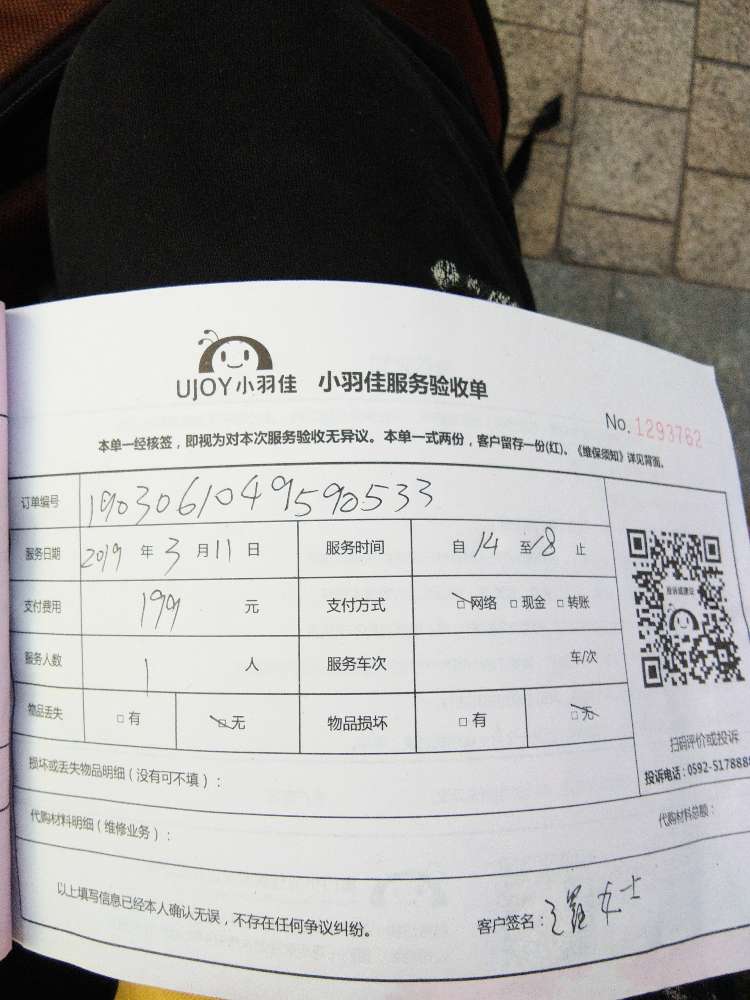 UJOY小羽佳 小羽佳服务验收单
No. 1293762
本单一经核签，即视为对本次服务验收无异议。本单一式两份，客户留存一份(红)。《维保须知》详见背面。
订单编号 1903061049590533
服务日期 2019 年 3 月 11 日 服务时间 自 14 至 18 止
支付费用 199 元 支付方式 □网络 □现金 □转账
服务人数 1 人 服务车次 车/次
物品丢失 □有 □无 物品损坏 □有 □无
投诉或建议
扫码评价或投诉
投诉电话：0592-5178888
损坏或丢失物品明细（没有可不填）：
代购材料明细（维修业务）： 代购材料总额：
以上填写信息已经本人确认无误，不存在任何争议纠纷。 客户签名： 女士